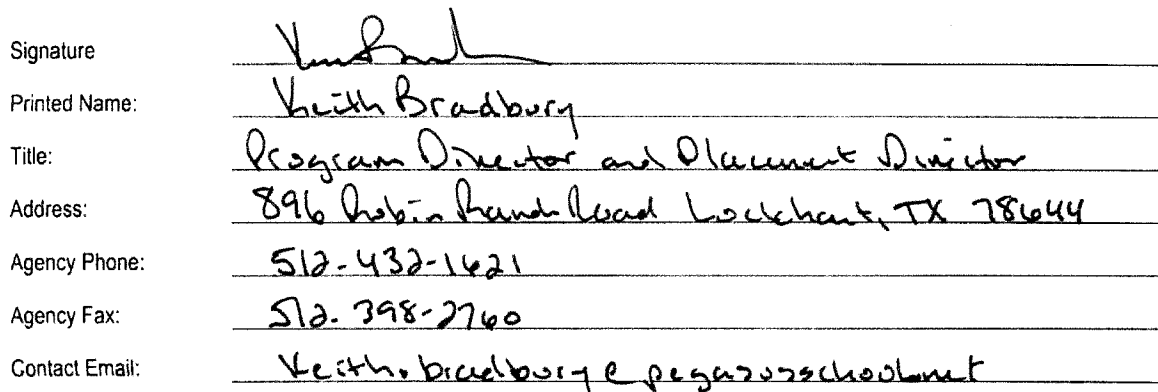 Signature
Printed Name: Keith Bradbury
Title: Program Director and Placement Director
Address: 896 Robin Ranch Road Lockhart, TX 78644
Agency Phone: 512-432-1621
Agency Fax: 512-398-2760
Contact Email: Keith.bradbury@pegasusschool.net